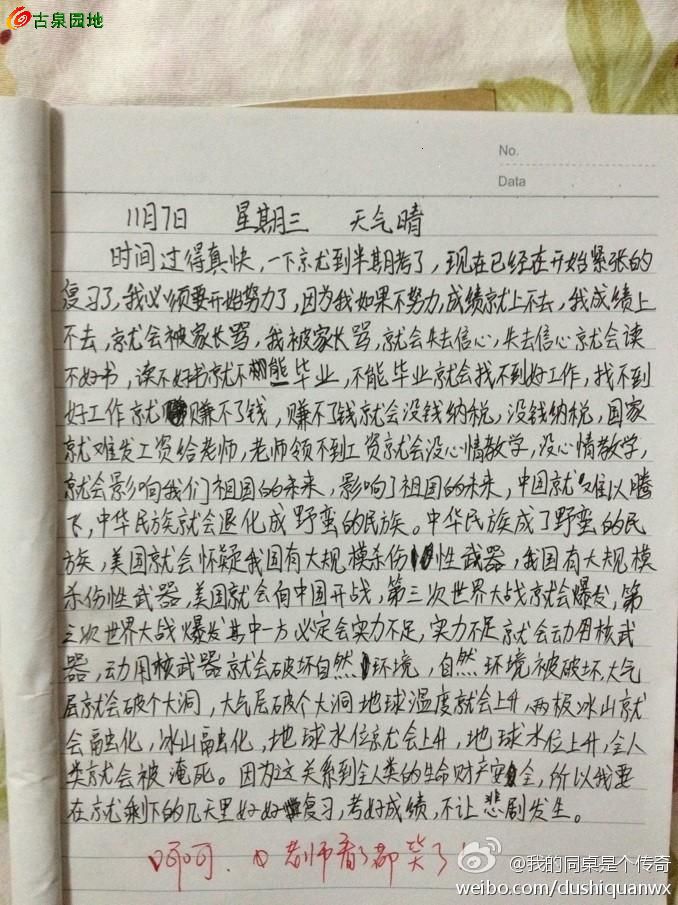 古泉园地
No.
Data
11月7日 星期三 天气晴
时间过得真快，一下就到半期考了，现在已经在开始紧张的
复习了，我必须要开始努力了，因为我如果不努力，成绩就上不去，我成绩上
不去，就会被家长骂，我被家长骂，就会失去信心，失去信心就会读
不好书，读不好书就不能毕业，不能毕业就会找不到好工作，找不到
好工作就赚不了钱，赚不了钱就会没钱纳税，没钱纳税，国家
就难发工资给老师，老师领不到工资就会没心情教学，没心情教学，
就会影响我们祖国的未来，影响了祖国的未来，中国就难以腾
飞，中华民族就会退化成野蛮的民族。中华民族成了野蛮的民
族，美国就会怀疑我国有大规模杀伤性武器，我国有大规模
杀伤性武器，美国就会向中国开战，第三次世界大战就会爆发，第
三次世界大战爆发其中一方必定会实力不足，实力不足就会动用核武
器，动用核武器就会破坏自然环境，自然环境被破坏，大气
层就会破个大洞，大气层破个大洞地球温度就会上升，两极冰山就
会融化，冰山融化，地球水位就会上升，地球水位上升，全人
类就会被淹死。因为这关系到全人类的生命财产安全，所以我要
在就剩下的几天里好好复习，考好成绩，不让悲剧发生。
呵呵．老师看了都笑了
@我的同桌是个传奇
weibo.com/dushiquanwx